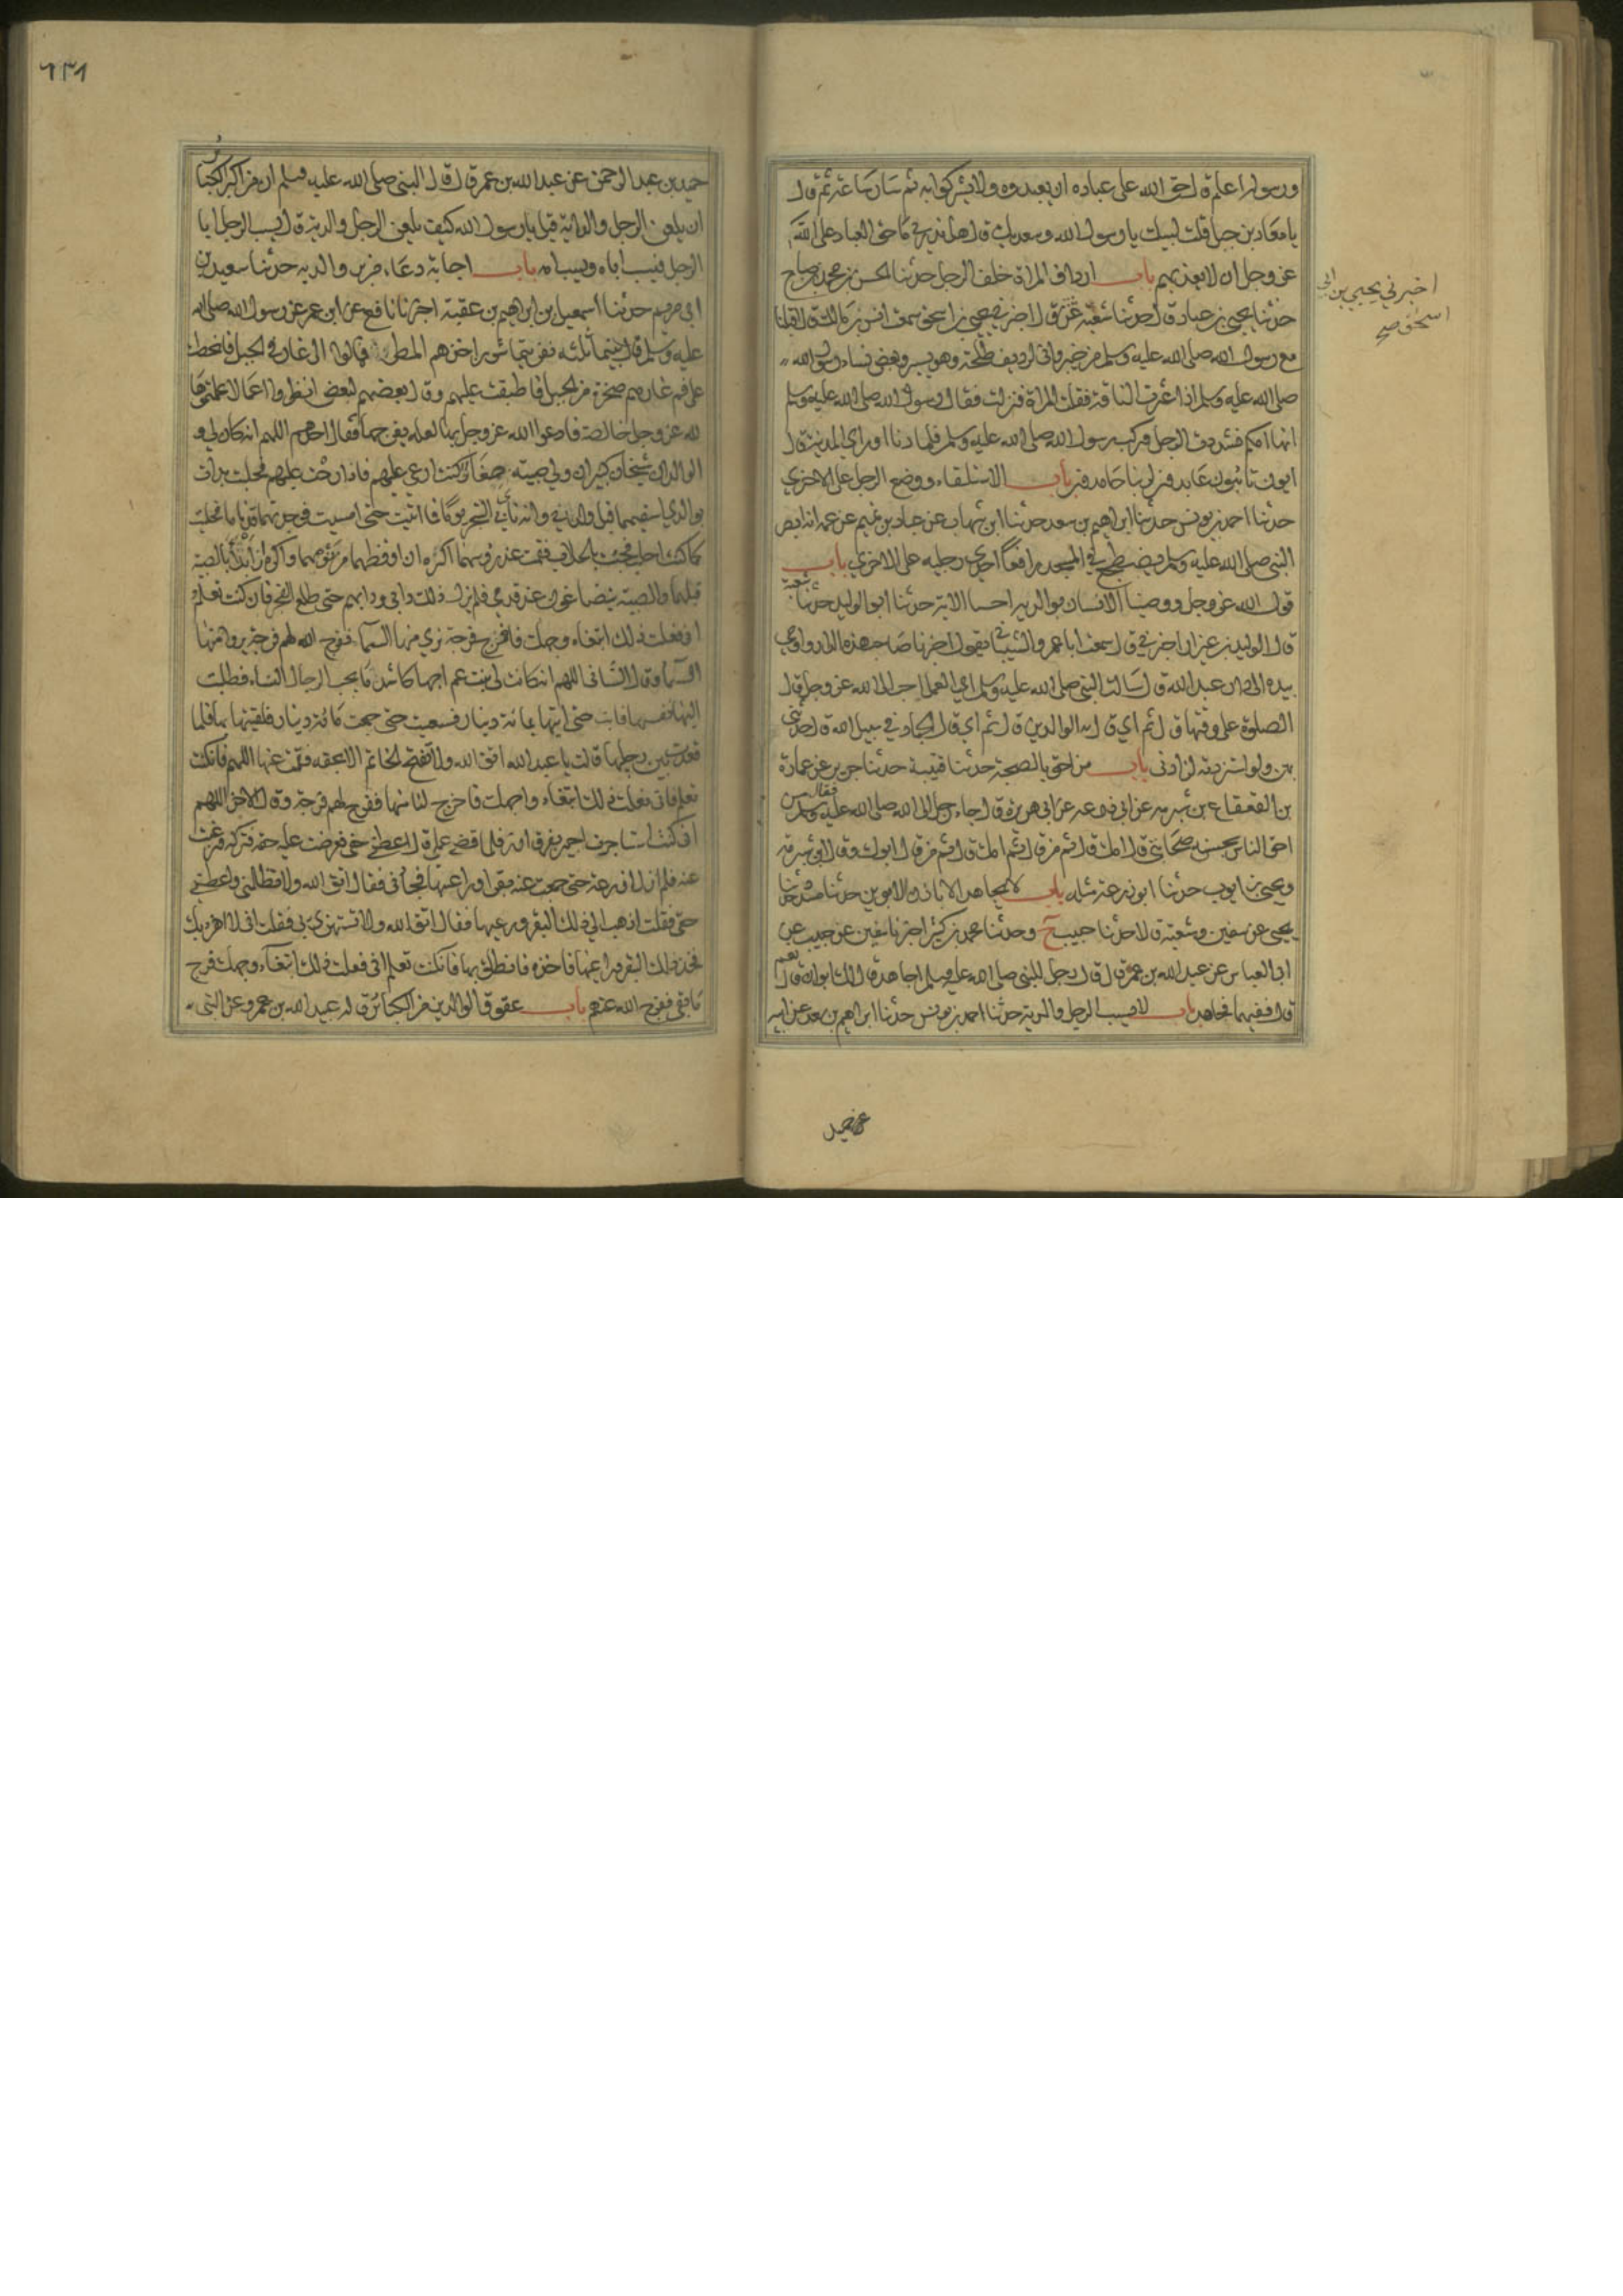 ورسوله اعلم قال حق الله على عباده ان يعبدوه ولا يشركوا به ثم سار ساعة ثم قال
يا معاذ بن جبل قلت لبيك يا رسول الله وسعديك قال هل تدري ما حق العباد على الله
عز وجل ان لا يعذبهم باب ارداف المراة خلف الرجل حدثنا الحسن بن محمد بن صباح
حدثنا يحيى بن عباد قال حدثنا شعبة قال اخبرني يحيى بن اسحق سمعت انس بن مالك قال اقبلنا
مع رسول الله صلى الله عليه وسلم من خيبر واني لرديف طلحة وهو يسير وبعض نساء رسول الله
صلى الله عليه وسلم اذ اعثرت الناقة فقلت المراة فنزلت فقال رسول الله صلى الله عليه وسلم
انها امكم فشددت الرحل فركب رسول الله صلى الله عليه وسلم فلما دنا او راي المدينة قال
ايبون تائبون عابدون لربنا حامدون باب الاستلقاء ووضع الرجل على الاخرى
حدثنا احمد بن يونس حدثنا ابراهيم بن سعد حدثنا ابن شهاب عن عباد بن تميم عن عمه انه ابصر
النبي صلى الله عليه وسلم يضطجع في المسجد رافعا احدى رجليه على الاخرى باب
قول الله عز وجل ووصينا الانسان بوالديه احسا الاية حدثنا ابو الوليد حدثنا شعبة
قال الوليد بن عيزار اخبرني قال سمعت ابا عمرو الشيباني يقول اخبرنا صاحب هذه الدار واومى
بيده الى دار عبد الله قال سالت النبي صلى الله عليه وسلم اي العمل احب الى الله عز وجل قال
الصلوة على وقتها قال ثم اي قال بر الوالدين قال ثم اي قال الجهاد في سبيل الله قال حدثني
بهن ولو استزدته لزادني باب من احق بالصحبة حدثنا قتيبة حدثنا جرير عن عمارة
بن القعقاع بن شبرمه عن ابي زرعه عن ابي هريرة قال جاء رجل الى الله صلى الله عليه وسلم فقال من
احق الناس بحسن صحابتي قال امك قال ثم من قال ثم امك قال ثم من قال ابوك وقال ابن شبرمة
ويحيى بن ايوب حدثنا ابو زرعة مثله باب لا يجاهد الا باذن الابوين حدثنا مسدد حدثنا
يحيى عن سفين وشعبة قالا حدثنا حبيب ح وحدثنا محمد بن كثير اخبرنا سفين عن حبيب عن
ابي العباس عن عبد الله بن عمرو قال قال رجل للنبي صلى الله عليه وسلم اجاهد قال لك ابوان قال نعم
قال ففيهما فجاهد باب لا يسب الرجل والديه حدثنا احمد بن يونس حدثنا ابراهيم بن سعد عن ابيه
اخبرني يحيى بن ابي
اسحق صح
عن حميد
٦٣٨
حميد بن عبد الرحمن عن عبد الله بن عمر قال قال النبي صلى الله عليه وسلم ان من اكبر الكبائر
ان يلعن الرجل والديه قيل يا رسول الله كيف يلعن الرجل والديه قال يسب الرجل ابا
الرجل فيسب اباه ويسب امه باب اجابة دعاء من بر والديه حدثنا سعيد بن
ابي مريم حدثنا اسمعيل بن ابراهيم بن عقبة اخبرنا نافع عن ابن عمر عن رسول الله صلى الله
عليه وسلم قال بينما ثلثه نفر يتماشون اخذهم المطر فمالوا الى غار في الجبل فانحطت
على فم غارهم صخرة من الجبل فاطبقت عليهم وقال بعضهم لبعض انظروا اعمالا عملتموها
لله عز وجل خالصة فادعوا الله عز وجل بها لعله يفرجها فقال احدهم اللهم انه كان لي و
الوالدان شيخان كبيران ولي صبية صغار كنت ارعى عليهم فاذا رحت عليهم فحلبت بدات
بوالدي اسقيهما قبل ولدي وانه ناي بي الشجر يوما فما اتيت حتى امسيت فوجدتهما قد ناما فحلبت
كما كنت احلب فجئت بالحلاب فقمت عند روسهما اكره ان اوقظهما من نومهما واكره ان ابدا بالصبية
قبلهما والصبية يتضاغون عند قدمي فلم يزل ذلك دابي ودابهم حتى طلع الفجر فان كنت تعلم
اني فعلت ذلك ابتغاء وجهك فافرج فرجة نري منها السماء ففرج الله لهم فرجة يرون منها
السماء وقال الثاني اللهم انه كانت لي بنت عم احبها كاشد ما يحب الرجال النساء فطلبت
اليها نفسها فابت حتى اتيها بمائة دينار فسعيت حتى جمعت مائة دينار فلقيتها بها فلما
قعدت بين رجليها قالت يا عبد الله اتق الله ولا تفتح الخاتم الا بحقه فقمت عنها اللهم فان كنت
تعلم اني فعلت ذلك ابتغاء واجهك فاخرج لنا منها ففرج لهم فرجة وقال الاخر اللهم
اني كنت استاجرت اجيرا بفرق ارز فلما قضى عمله قال اعطني حقي فعرضت عليه حقه فتركه ورغب
عنه فلم ازل ازرعه حتى جمعت منه بقرا وراعيها فجاءني فقال اتق الله ولا تظلمني واعطني
حقي فقلت اذهب الى ذلك البقر وراعيها فقال اتق الله ولا تستهزئ بي فقلت اني لا اهزء بك
فخذ ذلك البقر وراعيها فاخذه فانطلق بها فان كنت تعلم اني فعلت ذلك ابتغاء وجهك فافرج
ما بقي ففرج الله عنهم باب عقوق الوالدين من الكبائر قاله عبد الله بن عمرو عن النبي